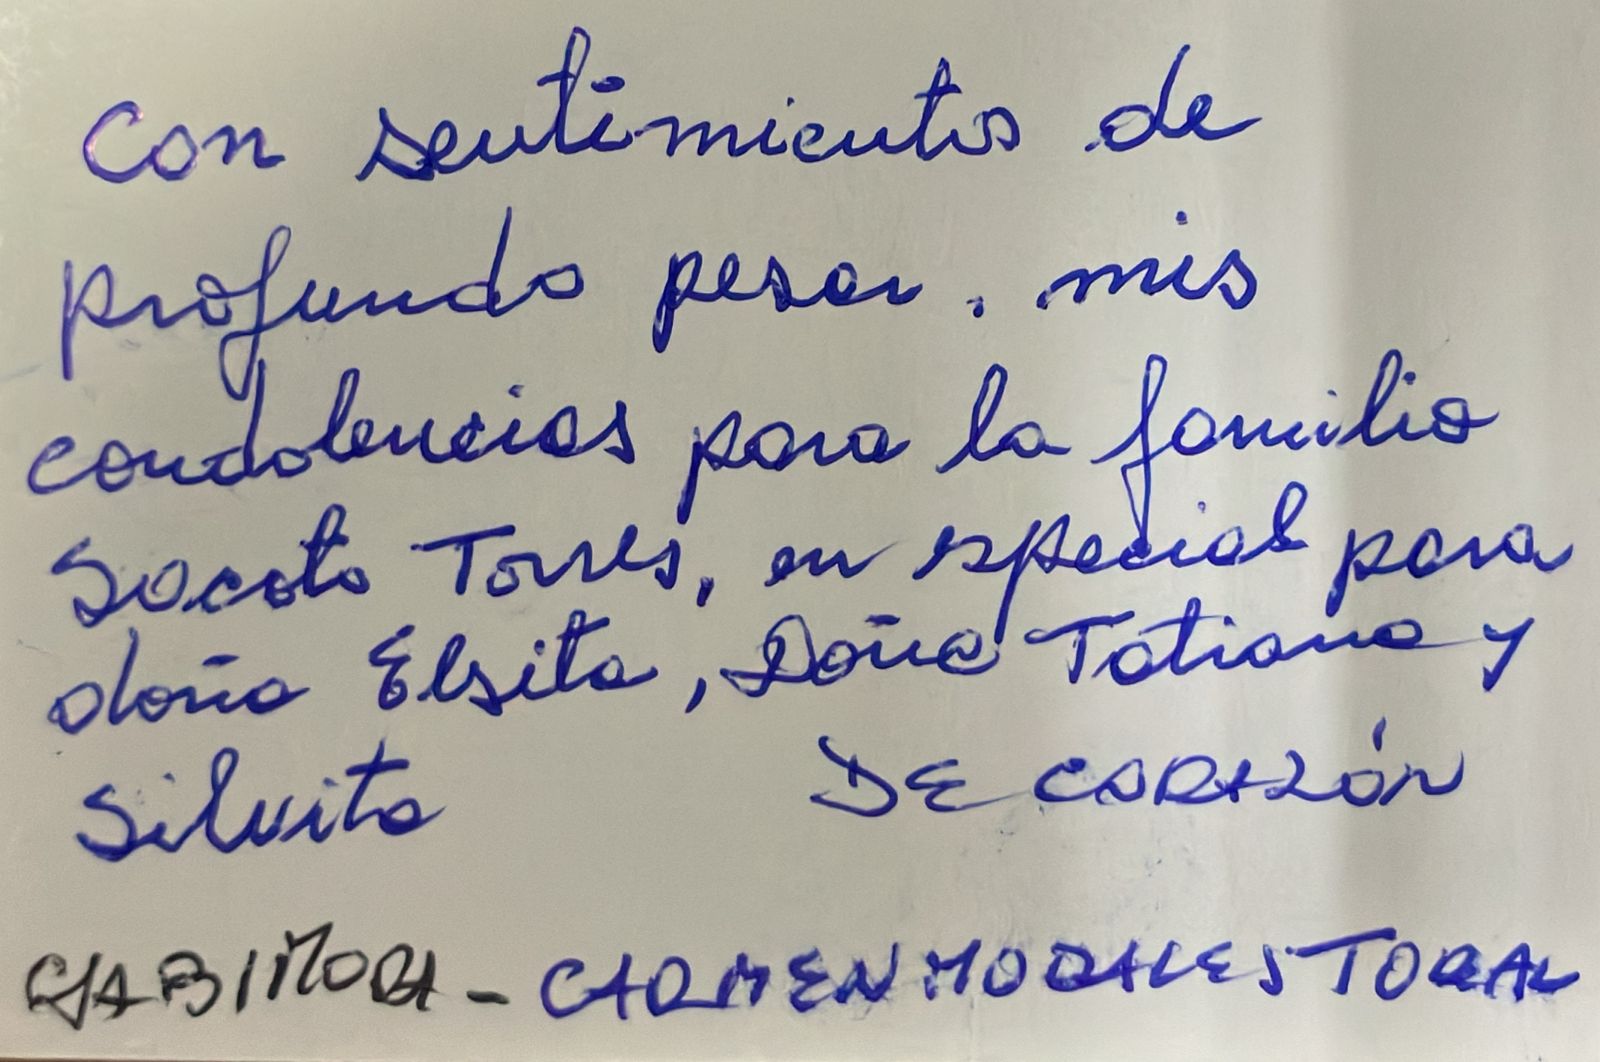 Con sentimientos de
profundo pesar. mis
condolencias para la familia
Sacoto Torres, en especial para
doña Elsita, Doña Tatiana y
Silvita DE CORAZÓN
GABI MORA - CARMEN MORALES TORAL